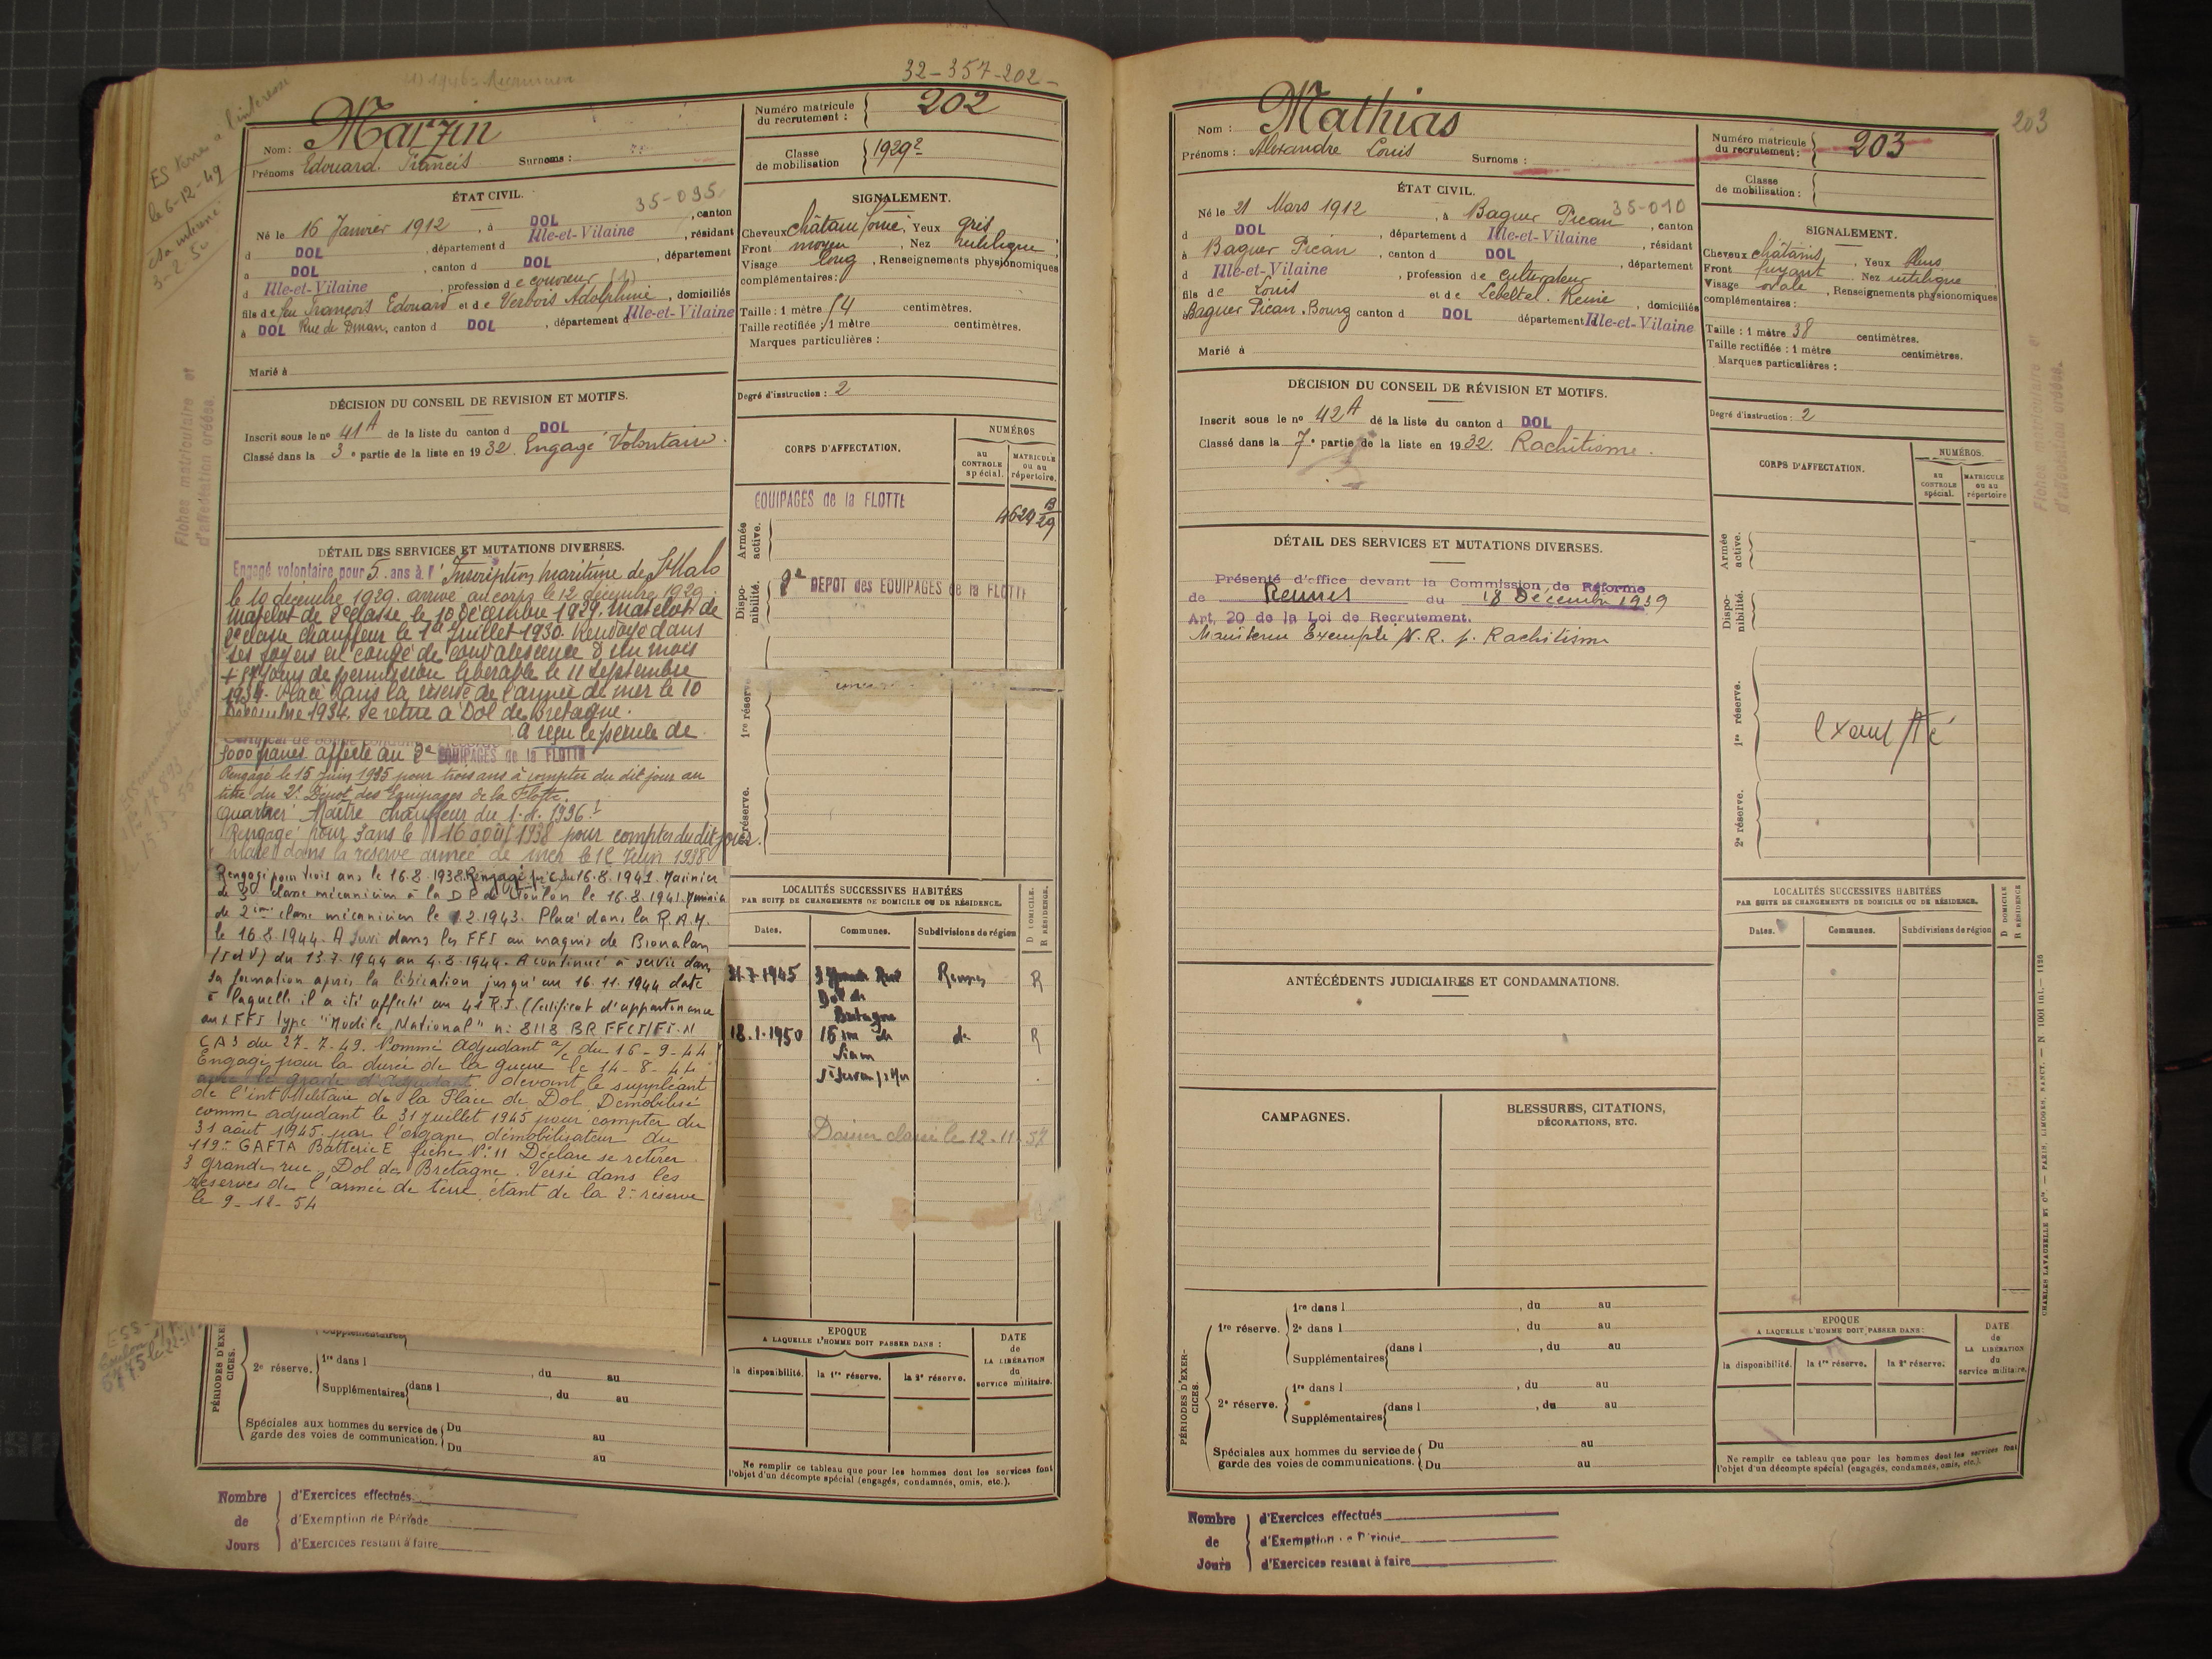 32-357-202-
Marzin
Nom :
Prénoms Edouard Francis Surnoms :
Numéro matricule du recrutement : 202
Classe de mobilisation 1929
ÉTAT CIVIL.
35-095
Né le 16 Janvier 1912, à DOL, canton
d DOL, département d Ille-et-Vilaine, résidant
à DOL, canton d DOL, département
d Ille-et-Vilaine, profession de couvreur (1)
fils de feu François Edouard et de Verbois Adolphine, domiciliés
à DOL Rue de Dinan, canton d DOL, département d Ille-et-Vilaine
Marié à
SIGNALEMENT.
Cheveux châtain foncé, Yeux gris
Front moyen, Nez rectiligne
Visage long, Renseignements physionomiques
complémentaires :
Taille : 1 mètre 54 centimètres.
Taille rectifiée : 1 mètre centimètres.
Marques particulières :
Degré d'instruction : 2
DÉCISION DU CONSEIL DE REVISION ET MOTIFS.
Inscrit sous le nº 41A de la liste du canton d DOL
Classé dans la 3e partie de la liste en 1932. Engagé Volontaire.
DÉTAIL DES SERVICES ET MUTATIONS DIVERSES.
Engagé volontaire pour 5 ans à l'Inscription maritime de St Malo
le 10 décembre 1929. arrivé au corps le 12 décembre 1929.
matelot de 3e classe le 10 décembre 1929. matelot de
2e classe chauffeur le 1er Juillet 1930. Renvoyé dans
ses foyers en congé de convalescence d'un mois
jours de permission libérable le 11 septembre
1934. Placé dans la réserve de l'armée de mer le 10
Décembre 1934. Se retire à Dol de Bretagne.
a reçu le pécule de
5000 francs affecté au 2e EQUIPAGES de la FLOTTE
Rengagé le 15 Juin 1935 pour trois ans à compter du dit jour au
titre du 2e Dépôt des Equipages de la Flotte.
Quartier Maître chauffeur du 1.4.1936.
Rengagé pour 3 ans le 16 août 1938 pour compter du dit jour.
placé dans la réserve armée de mer le 15 Juin 1938
Rengagé pour trois ans le 16.8.1938. Rengagé 16.8.1941. Marinier
de 3e classe mécanicien à la D P de Toulon le 16.8.1941.
de 2ème classe mécanicien le 1.2.1943. Placé dans la R.A.M.
le 16.8.1944. A servi dans les FFI au maquis de Broualan
(I et V) du 13.7.1944 au 4.8.1944. A continué à servir dans
sa formation après la libération jusqu'au 16.11.1944 date
à laquelle il a été affecté au 41 R.I. (Certificat d'appartenance
aux FFI type "Modèle National" n: 8118 BR FFCI/FI.N
CA3 du 27-7-49. Nommé Adjudant a/c du 16-9-44
Engagé pour la durée de la guerre le 14-8-44
avec le grade d'Adjudant devant le suppléant
de l'int Militaire de la Place de Dol. Démobilisé
comme adjudant le 31 juillet 1945 pour compter du
31 août 1945 par l'organe démobilisateur du
119e GAFTA Batterie E fiche Nº 11 Déclare se retirer
3 grande rue Dol de Bretagne. Versé dans les
réserves de l'armée de terre, étant de la 2e réserve
le 9-12-54
CORPS D'AFFECTATION.
NUMÉROS
au CONTROLE spécial.
MATRICULE ou au répertoire.
Armée active.
EQUIPAGES de la FLOTTE
4629 B/29
Disponibilité.
2e DEPOT des EQUIPAGES de la FLOTTE
1re réserve
2e réserve.
LOCALITÉS SUCCESSIVES HABITÉES
PAR SUITE DE CHANGEMENTS DE DOMICILE OU DE RÉSIDENCE.
Dates. Communes. Subdivisions de région
D DOMICILE.
R RÉSIDENCE.
31.7.1945 3 Grande Rue Dol de Bretagne Rennes R
18.1.1950 Siam St Servan s/Mer do R
Dossier classé le 12-11-57
PÉRIODES D'EXERCICES.
Supplémentaires
2e réserve. 1re dans l , du au
Supplémentaires dans l , du au
Spéciales aux hommes du service de garde des voies de communication. Du au
Du au
EPOQUE
A LAQUELLE L'HOMME DOIT PASSER DANS :
la disponibilité. la 1re réserve. la 2e réserve.
DATE de LA LIBÉRATION du service militaire.
Ne remplir ce tableau que pour les hommes dont les services font
l'objet d'un décompte spécial (engagés, condamnés, omis, etc.).
Nombre de Jours
d'Exercices effectués
d'Exemption de Période
d'Exercices restant à faire
Fiches matriculaire et
d'affectation créées.
le 6-12-49
3-2-50
203
Nom : Mathias
Prénoms : Alexandre Louis Surnoms :
Numéro matricule du recrutement : 203
Classe de mobilisation :
ÉTAT CIVIL.
35-010
Né le 21 Mars 1912, à Baguer Pican, canton
d DOL, département d Ille-et-Vilaine, résidant
à Baguer Pican, canton d DOL, département
d Ille-et-Vilaine, profession de cultivateur
fils de Louis et de Lebeltel Reine, domiciliés
à Baguer Pican. Bourg canton d DOL département Ille-et-Vilaine
Marié à
SIGNALEMENT.
Cheveux châtains, Yeux bleus
Front fuyant Nez rectiligne
Visage ovale, Renseignements physionomiques
complémentaires :
Taille : 1 mètre 38 centimètres.
Taille rectifiée : 1 mètre centimètres.
Marques particulières :
Degré d'instruction : 2
DÉCISION DU CONSEIL DE RÉVISION ET MOTIFS.
Inscrit sous le nº 42A de la liste du canton d DOL
Classé dans la 7e partie de la liste en 1932. Rachitisme.
DÉTAIL DES SERVICES ET MUTATIONS DIVERSES.
Présenté d'office devant la Commission de Réforme
de Rennes du 18 Décembre 1939
Art. 20 de la Loi de Recrutement.
Maintenu Exempté N.R. p. Rachitisme
CORPS D'AFFECTATION.
NUMÉROS.
au CONTROLE spécial.
MATRICULE ou au répertoire
Armée active.
Disponibilité.
1re réserve.
Exempté
2e réserve.
LOCALITÉS SUCCESSIVES HABITÉES
PAR SUITE DE CHANGEMENTS DE DOMICILE OU DE RÉSIDENCE.
Dates. Communes. Subdivisions de région
D DOMICILE
R RÉSIDENCE
ANTÉCÉDENTS JUDICIAIRES ET CONDAMNATIONS.
CAMPAGNES.
BLESSURES, CITATIONS,
DÉCORATIONS, ETC.
PÉRIODES D'EXERCICES.
1re réserve. 1re dans l , du au
2e dans l , du au
Supplémentaires dans l , du au
2e réserve. 1re dans l , du au
Supplémentaires dans l , du au
Spéciales aux hommes du service de garde des voies de communications. Du au
Du au
EPOQUE
A LAQUELLE L'HOMME DOIT PASSER DANS :
la disponibilité. la 1re réserve. la 2e réserve.
DATE de LA LIBÉRATION du service militaire.
Ne remplir ce tableau que pour les hommes dont les services font
l'objet d'un décompte spécial (engagés, condamnés, omis, etc.).
Nombre de Jours
d'Exercices effectués
d'Exemption
d'Exercices restant à faire
Fiches matriculaire et
d'affectation créées.
CHARLES-LAVAUZELLE ET Cie — PARIS, LIMOGES, NANCY. — N 1001 int. — 1126